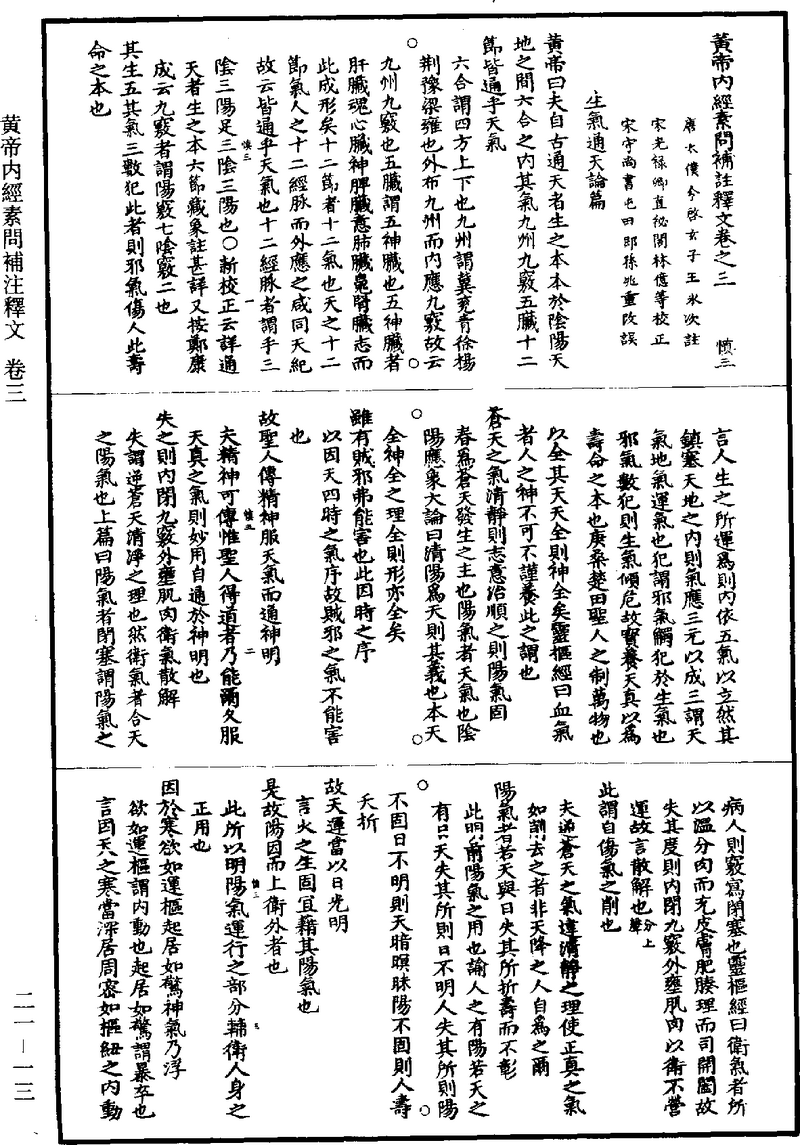 黃帝內經素問補註釋文卷之三 慎三
唐太僕令啓玄子王氷次註
宋光祿卿直祕閣林億等校正
宋守尚書屯田郎孫兆重改誤
生氣通天論篇
黃帝曰夫自古通天者生之本本於陰陽天
地之間六合之內其氣九州九竅五臟十二
節皆通乎天氣
六合謂四方上下也九州謂冀兗青徐揚
荆豫梁雍也外布九州而內應九竅故云
九州九竅也五臟謂五神臟也五神臟者
肝臟魂心臟神脾臟意肺臟魄腎臟志而
此成形矣十二節者十二氣也天之十二
節氣人之十二經脉而外應之咸同天紀
故云皆通乎天氣也十二經脉者謂手三
陰三陽足三陰三陽也○新校正云詳通
天者生之本六節藏象註甚詳又按鄭康
成云九竅者謂陽竅七陰竅二也
其生五其氣三數犯此者則邪氣傷人此壽
命之本也
言人生之所運爲則內依五氣以立然其
鎮塞天地之內則氣應三元以成三謂天
氣地氣運氣也犯謂邪氣觸犯於生氣也
邪氣數犯則生氣傾危故寳養天真以爲
壽命之本也庚桑楚曰聖人之制萬物也
以全其天天全則神全矣靈樞經曰血氣
者人之神不可不謹養此之謂也
蒼天之氣清靜則志意治順之則陽氣固
春爲蒼天發生之主也陽氣者天氣也陰
陽應象大論曰清陽爲天則其義也本天
全神全之理全則形亦全矣
雖有賊邪弗能害也此因時之序
以因天四時之氣序故賊邪之氣不能害
也
故聖人傳精神服天氣而通神明
夫精神可傳惟聖人得道者乃能爾久服
天真之氣則妙用自通於神明也
失之則內閉九竅外壅肌肉衛氣散解
失謂逆蒼天清淨之理也然衛氣者合天
之陽氣也上篇曰陽氣者閉塞謂陽氣之
病人則竅寫閉塞也靈樞經曰衛氣者所
以溫分肉而充皮膚肥腠理而司開闔故
失其度則內閉九竅外壅肌肉以衛不營
運故言散解也分上聲
此謂自傷氣之削也
夫逆蒼天之氣違清靜之理使正真之氣
如削去之者非天降之人自爲之爾
陽氣者若天與日失其所折壽而不彰
此明前陽氣之用也諭人之有陽若天之
有日天失其所則日不明人失其所則陽
不固日不明則天暗暝昧陽不固則人壽
夭折
故天運當以日光明
言火之生固宜藉其陽氣也
是故陽因而上衛外者也
此所以明陽氣運行之部分輔衛人身之
正用也
因於寒欲如運樞起居如驚神氣乃浮
欲如運樞謂內動也起居如驚謂暴卒也
言因天之寒當深居周密如樞紐之內動
黄帝內經素問補注釋文 卷三
二一—一三